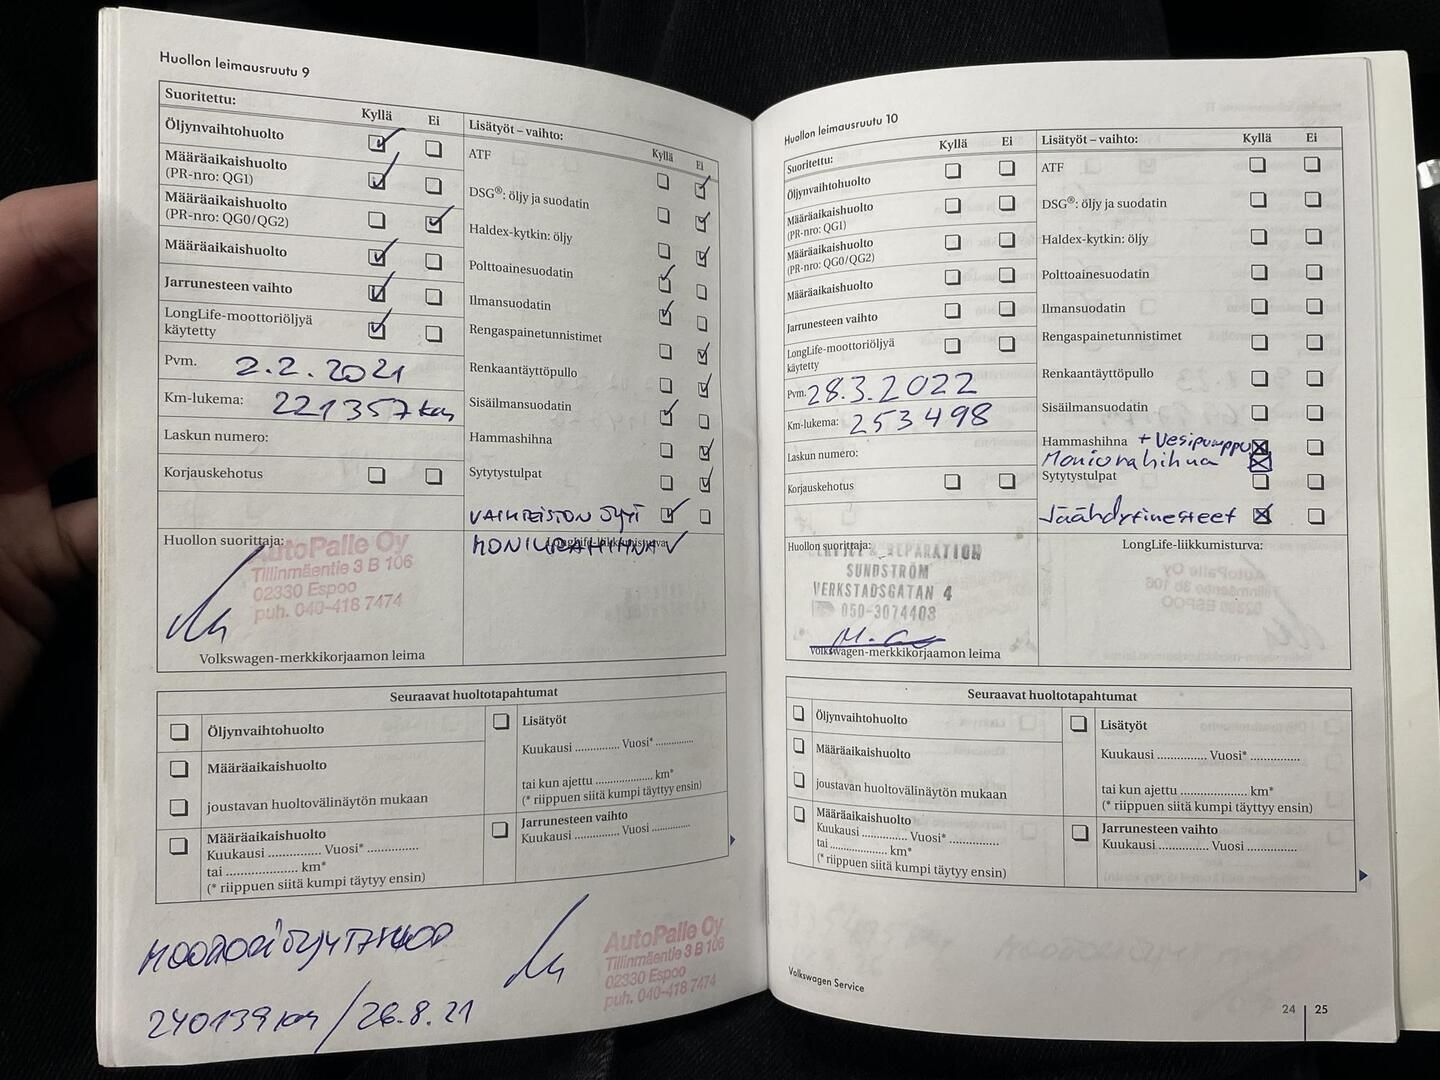 Huollon leimausruutu 9
Suoritettu:
Kyllä Ei
Öljynvaihtohuolto
Määräaikaishuolto
(PR-nro: QG1)
Määräaikaishuolto
(PR-nro: QG0/QG2)
Määräaikaishuolto
Jarrunesteen vaihto
LongLife-moottoriöljyä
käytetty
Pvm. 2.2.2021
Km-lukema: 221357 km
Laskun numero:
Korjauskehotus
Huollon suorittaja:
AutoPalle Oy
Tillinmäentie 3 B 106
02330 Espoo
puh. 040-418 7474
Volkswagen-merkkikorjaamon leima
Lisätyöt – vaihto:
Kyllä Ei
ATF
DSG®: öljy ja suodatin
Haldex-kytkin: öljy
Polttoainesuodatin
Ilmansuodatin
Rengaspainetunnistimet
Renkaantäyttöpullo
Sisäilmansuodatin
Hammashihna
Sytytystulpat
VAIHTEISTON ÖLJYT
LongLife-liikkumisturva:
MONIURAHIHNA
Seuraavat huoltotapahtumat
Öljynvaihtohuolto
Määräaikaishuolto
joustavan huoltovälinäytön mukaan
Määräaikaishuolto
Kuukausi ............... Vuosi* ...............
tai ..................... km*
(* riippuen siitä kumpi täytyy ensin)
Lisätyöt
Kuukausi ............... Vuosi* ...............
tai kun ajettu ..................... km*
(* riippuen siitä kumpi täyttyy ensin)
Jarrunesteen vaihto
Kuukausi ............... Vuosi ...............
240139 km / 26.8.21
AutoPalle Oy
Tillinmäentie 3 B 106
02330 Espoo
puh. 040-418 7474
Huollon leimausruutu 10
Suoritettu:
Kyllä Ei
Öljynvaihtohuolto
Määräaikaishuolto
(PR-nro: QG1)
Määräaikaishuolto
(PR-nro: QG0/QG2)
Määräaikaishuolto
Jarrunesteen vaihto
LongLife-moottoriöljyä
käytetty
Pvm. 28.3.2022
Km-lukema: 253498
Laskun numero:
Korjauskehotus
Huollon suorittaja:
SERVICE & REPARATION
SUNDSTRÖM
VERKSTADSGATAN 4
050-3074408
Volkswagen-merkkikorjaamon leima
Lisätyöt – vaihto:
Kyllä Ei
ATF
DSG®: öljy ja suodatin
Haldex-kytkin: öljy
Polttoainesuodatin
Ilmansuodatin
Rengaspainetunnistimet
Renkaantäyttöpullo
Sisäilmansuodatin
Hammashihna + Vesipumppu
Moniurahihna
Sytytystulpat
Jäähdytinesteet
LongLife-liikkumisturva:
Seuraavat huoltotapahtumat
Öljynvaihtohuolto
Määräaikaishuolto
joustavan huoltovälinäytön mukaan
Määräaikaishuolto
Kuukausi ............... Vuosi* ...............
tai ..................... km*
(* riippuen siitä kumpi täyttyy ensin)
Lisätyöt
Kuukausi ............... Vuosi* ...............
tai kun ajettu ..................... km*
(* riippuen siitä kumpi täyttyy ensin)
Jarrunesteen vaihto
Kuukausi ............... Vuosi ...............
Volkswagen Service
24 25